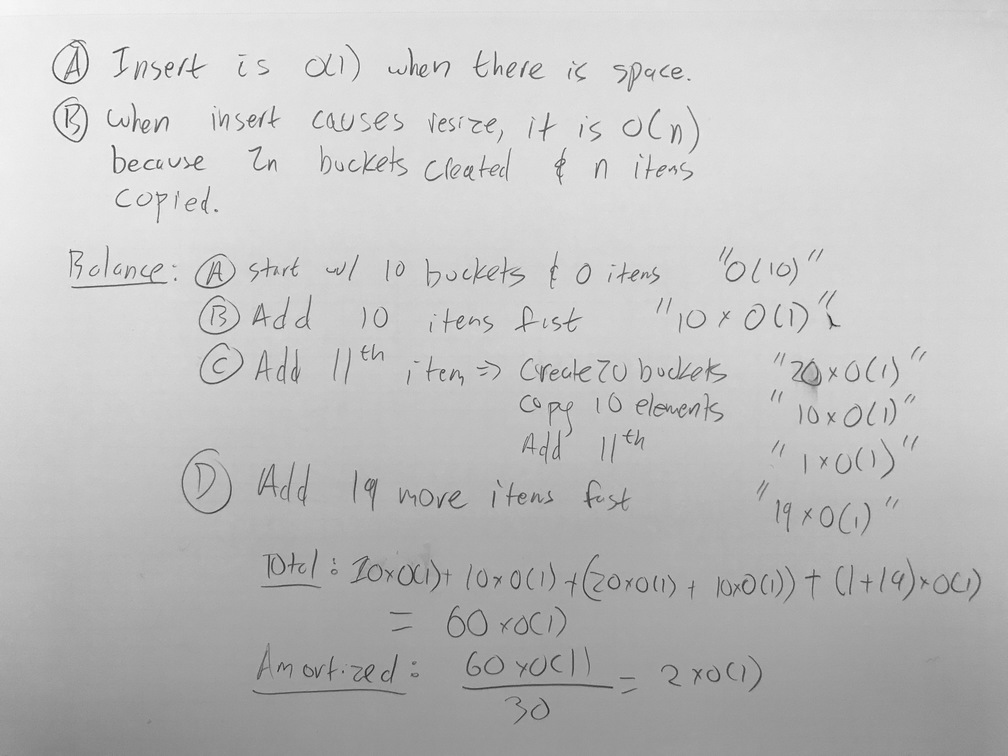 Ⓐ Insert is O(1) when there is space.
Ⓑ When insert causes resize, it is O(n)
because 2n buckets created & n items
copied.
Balance: Ⓐ start w/ 10 buckets & 0 items "O(10)"
Ⓑ Add 10 items fast "10 × O(1)"
Ⓒ Add 11th item => Create 20 buckets "20×O(1)"
Copy 10 elements "10×O(1)"
Add 11th "1×O(1)"
Ⓓ Add 19 more items fast "19×O(1)"
Total: 10×O(1)+ 10×O(1) + (20×O(1) + 10×O(1)) + (1+19)×O(1)
= 60×O(1)
Amortized: 60×O(1) / 30 = 2×O(1)